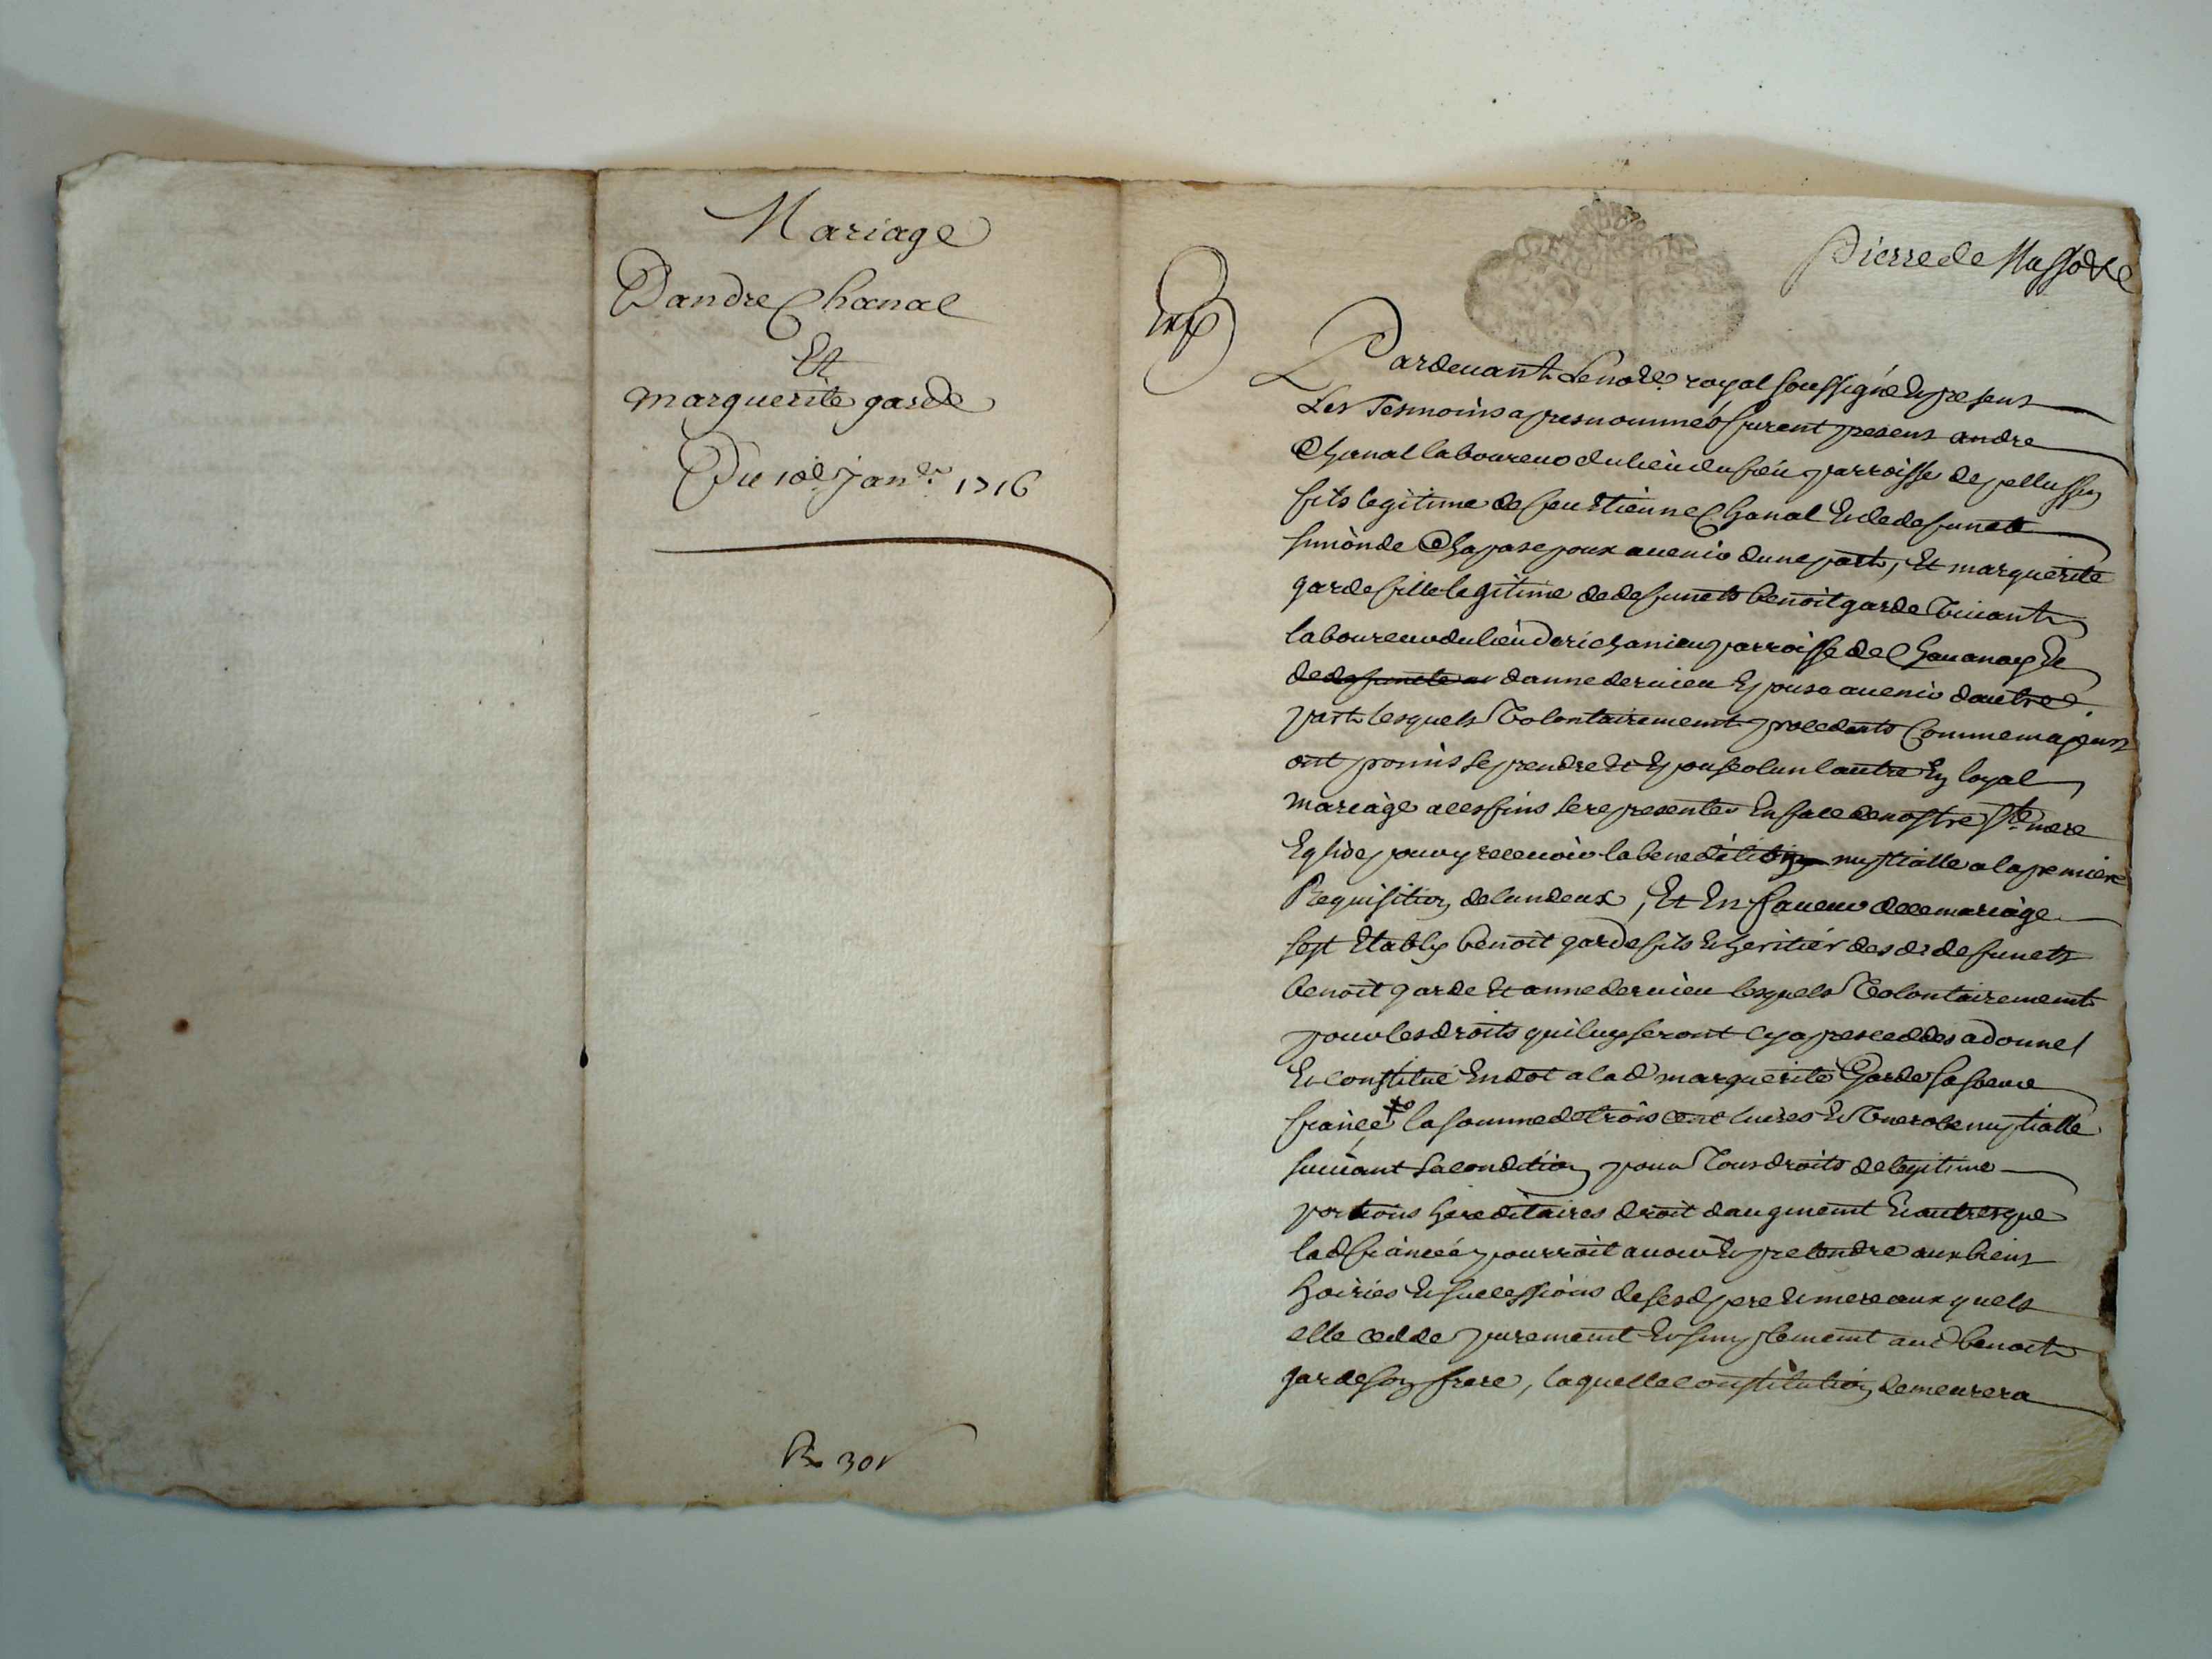 Mariage
Dandre Chanal
Et
marguerite garde
Du 10e Janer 1716
R 30s
Pierre de
Exp
Pardeuant Le notre royal soussigné Et presens
Les Tesmoins apres nommés furent presens andre
Chanal laboureur du lieu du parroisse de pellussin
fils legitime de feu Etienne Chanal Et de defuncte
simonde Chapase poux auenir dune part, Et marguerite
garde fille legitime de defuncts benoit garde viuant
laboureur du lieu de richanieu parroisse de Chauanay Et
de defuncte danne deruieu Epouse auenir dautre
part lesquels Volontairement procedants Comme majeurs
ont promis se prendre Et Epouser lun lautre En loyal
mariage a ces fins se representer En face de nostre Ste mere
Eglise pour y receuoir la benediction nuptialle a la premiere
Requisition de lun deux, Et En faueur de ce mariage
sest Etably benoit garde fils Et heritier des ds defuncts
benoit garde Et anne deruieu lesquels Volontairement
pour les droits qui luy seront cy apres ceddes a donné
Et constitué En dot a la d marguerite Garde sa soeur
fiancée la somme de trois cent liures Et Vne robe nuptialle
suiuant sa condition pour Tous droits de legitime
portions hereditaires droit daugment Et autres que
la d fiancée pourroit auoir Et pretendre aux biens
hoiries Et successions de ses d pere Et mere aux quels
elle cedde purement Et simplement au d benoit
garde son frere, laquelle constitution demeurera